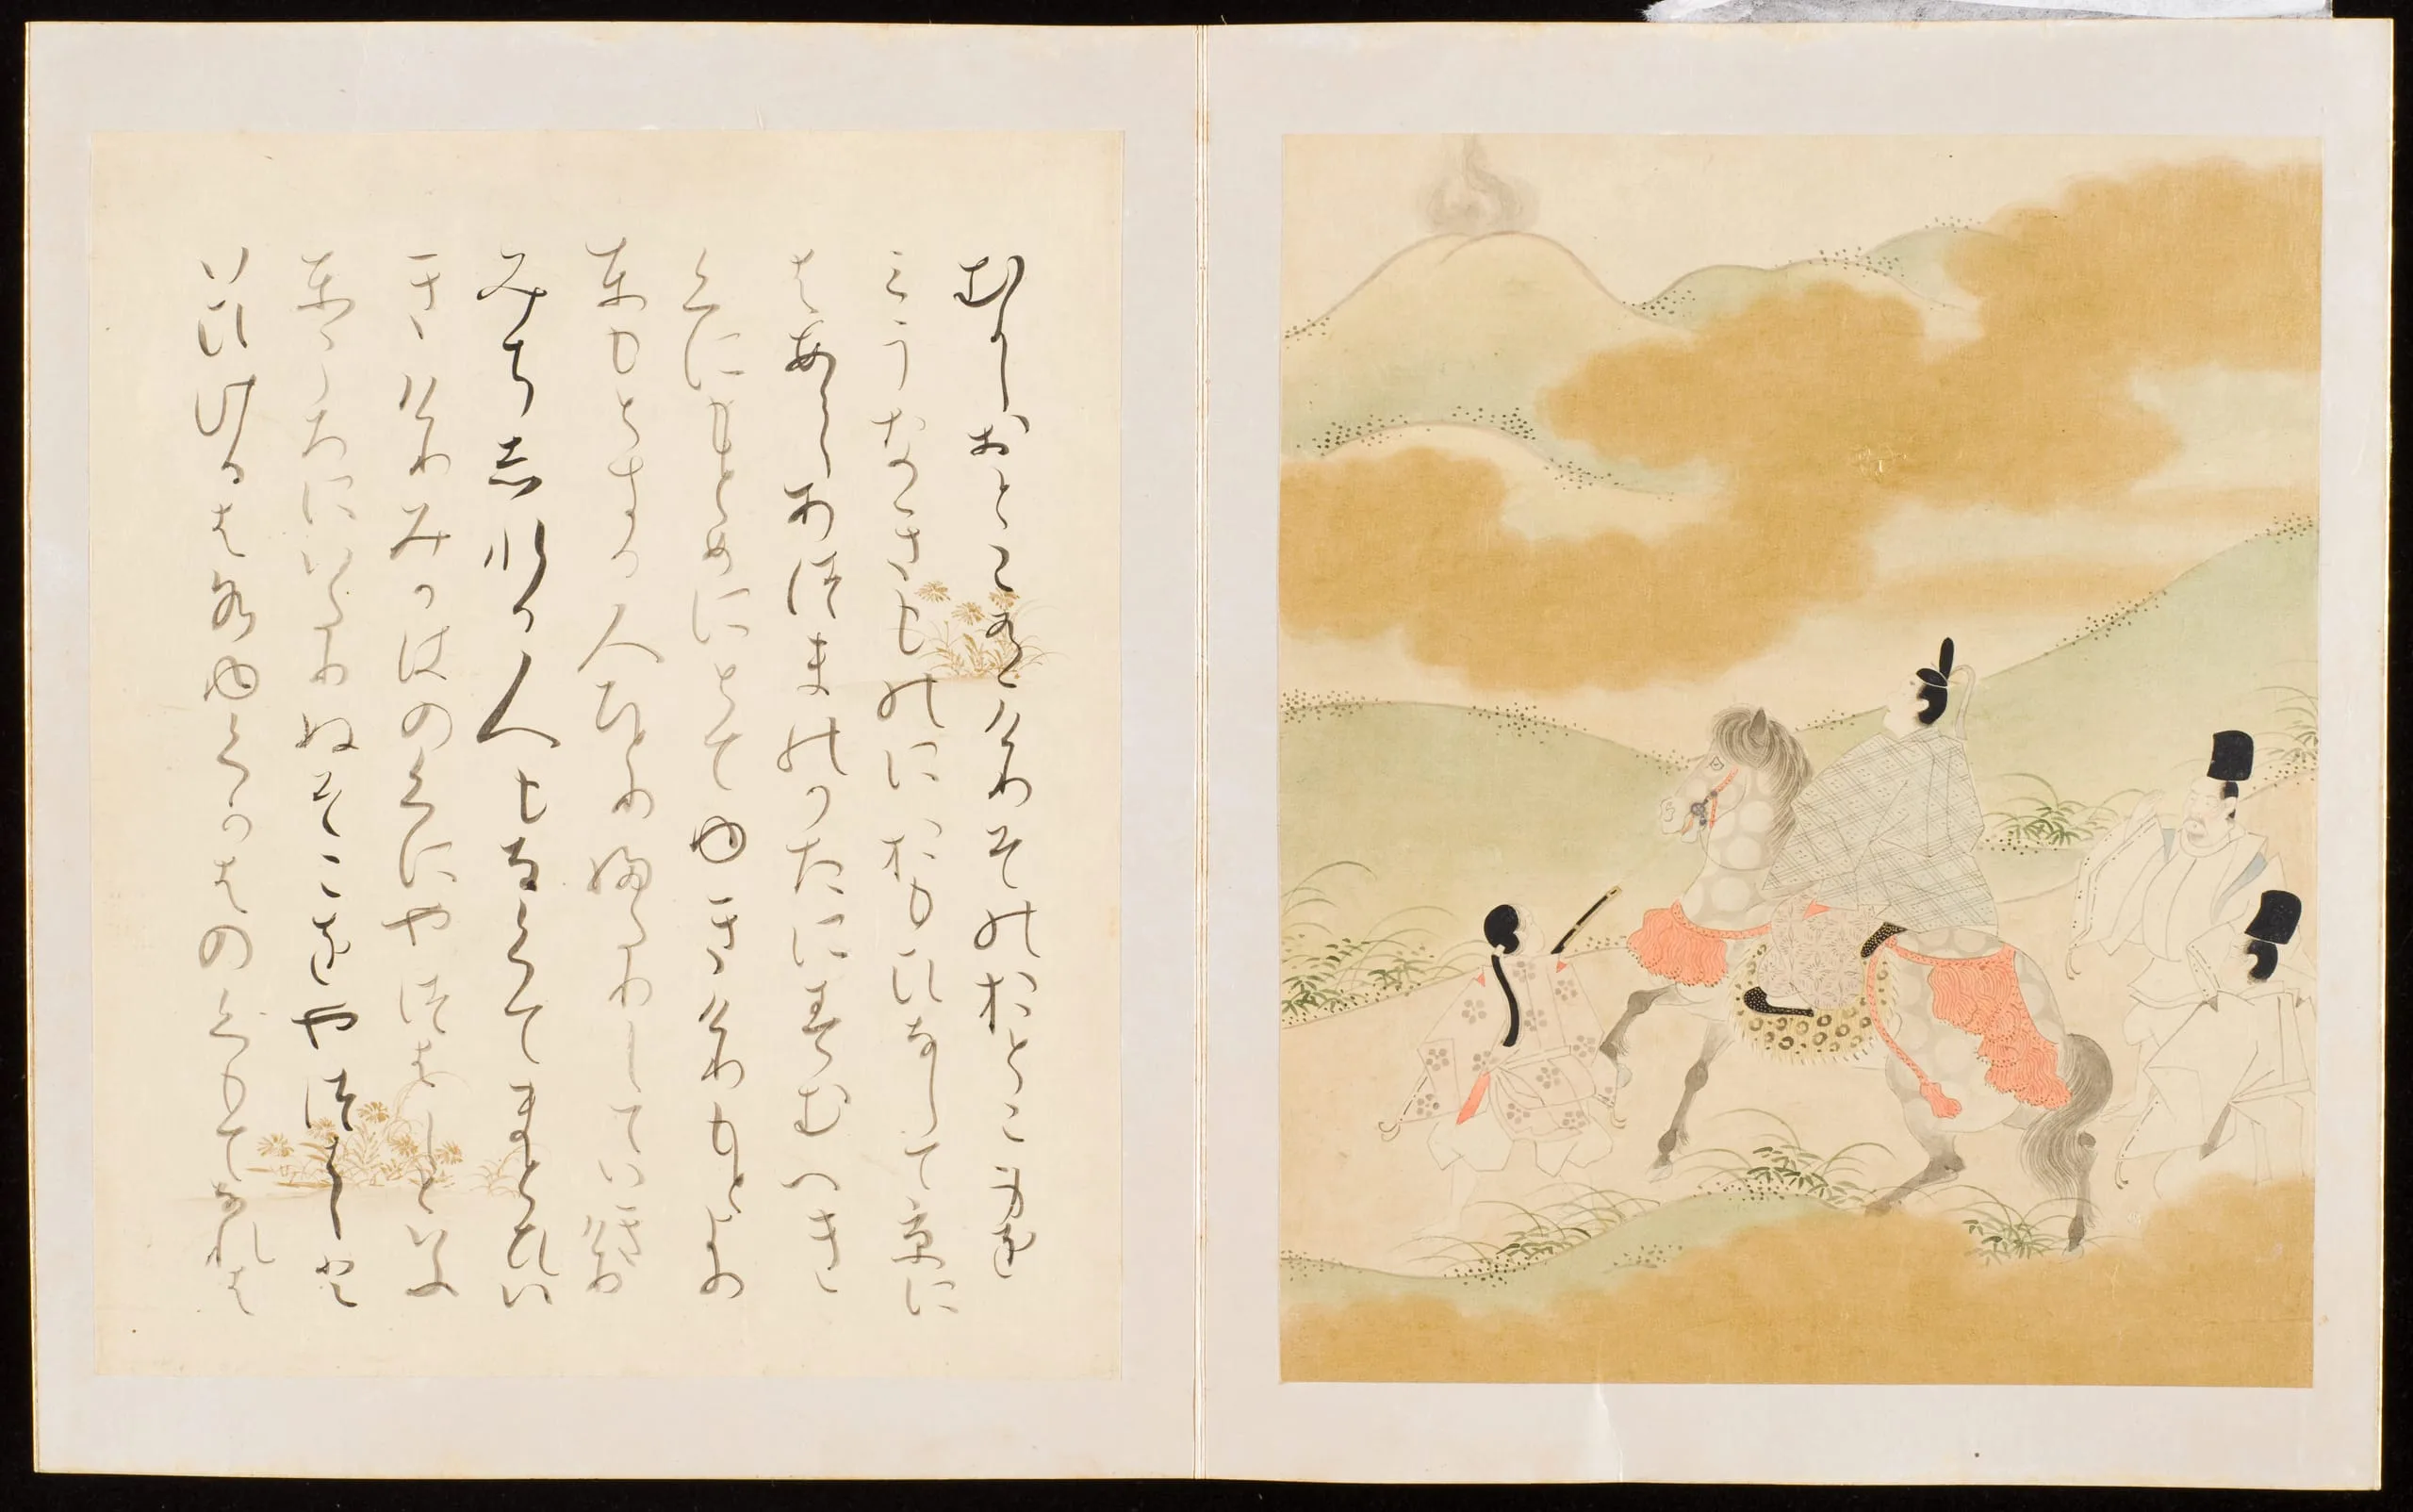 むかしおとこありけりそのおとこ身
をえうなきものにおもひなして京に
はあらしあつまのかたにすむへき
くにもとめにとてゆきけりもとより
ともとする人ひとりふたりしていきけり
みちしれる人もなくてまとひい
きけりみかはのくにやつはしと
いふ所にいたりぬそこをやつはしと
いひけるは水ゆくかはのくもてなれは